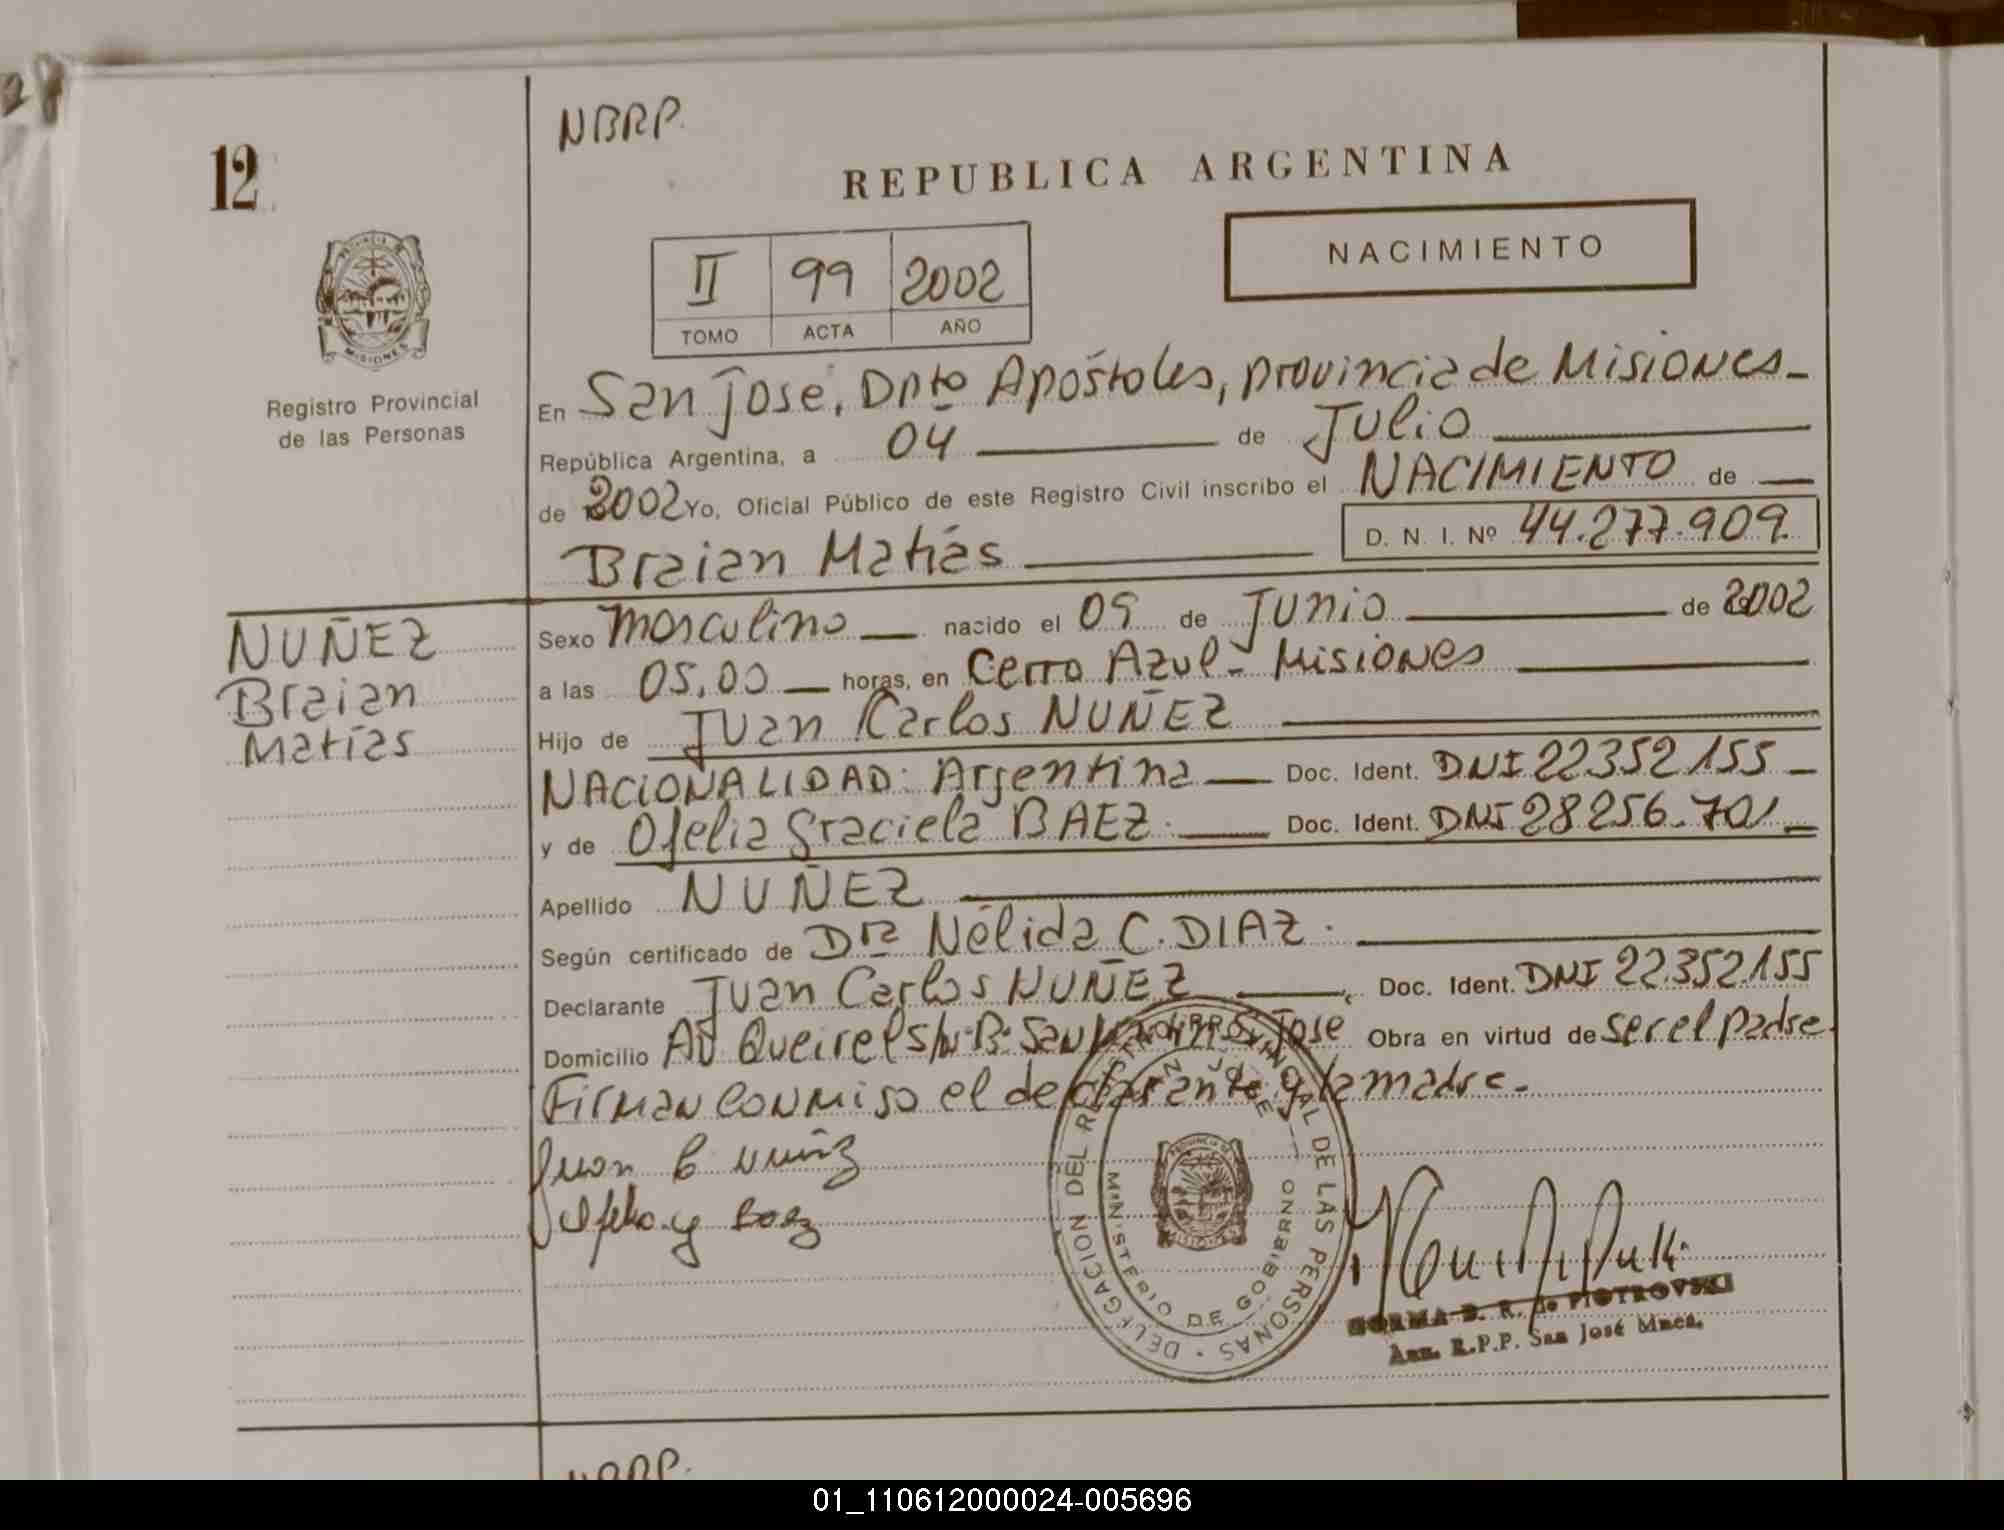 28
NBRP.
12
REPUBLICA ARGENTINA
NACIMIENTO
II 99 2002
TOMO ACTA AÑO
PROVINCIA DE
MISIONES
Registro Provincial
de las Personas
En San José, Dpto Apóstoles, provincia de Misiones
República Argentina, a 04 de Julio
de 2002 Yo, Oficial Público de este Registro Civil inscribo el NACIMIENTO de
Braian Matías D. N. I. Nº 44.277.909.
NUÑEZ
Braian
Matías
Sexo masculino nacido el 09 de Junio de 2002
a las 05,00 horas, en Cerro Azul - Misiones
Hijo de Juan Carlos NUÑEZ
NACIONALIDAD: Argentina Doc. Ident. DNI 22352155
y de Ofelia Graciela BAEZ. Doc. Ident. DNI 28256.701
Apellido NUÑEZ
Según certificado de Dra Nélida C. DIAZ.
Declarante Juan Carlos NUÑEZ, Doc. Ident. DNI 22.352.155
Domicilio Av Queirel s/n B: San José Obra en virtud de ser el padre.
Firman conmiso el declarante y la madre.
Juan C Nuñz
Ofelia g Baez
DELEGACION DEL REGISTRO PROVINCIAL DE LAS PERSONAS
SAN JOSE
MINISTERIO DE GOBIERNO
PROVINCIA DE
MISIONES
NORMA B. R. de PIOTROVSKI
R.P.P. San José Mnes.
NBRP.
01_110612000024-005696